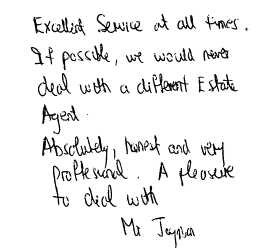 Excellent Service at all times.
If possible, we would never
deal with a different Estate
Agent.
Absolutely, honest and very
proffesional. A pleasure
to deal with
Mr